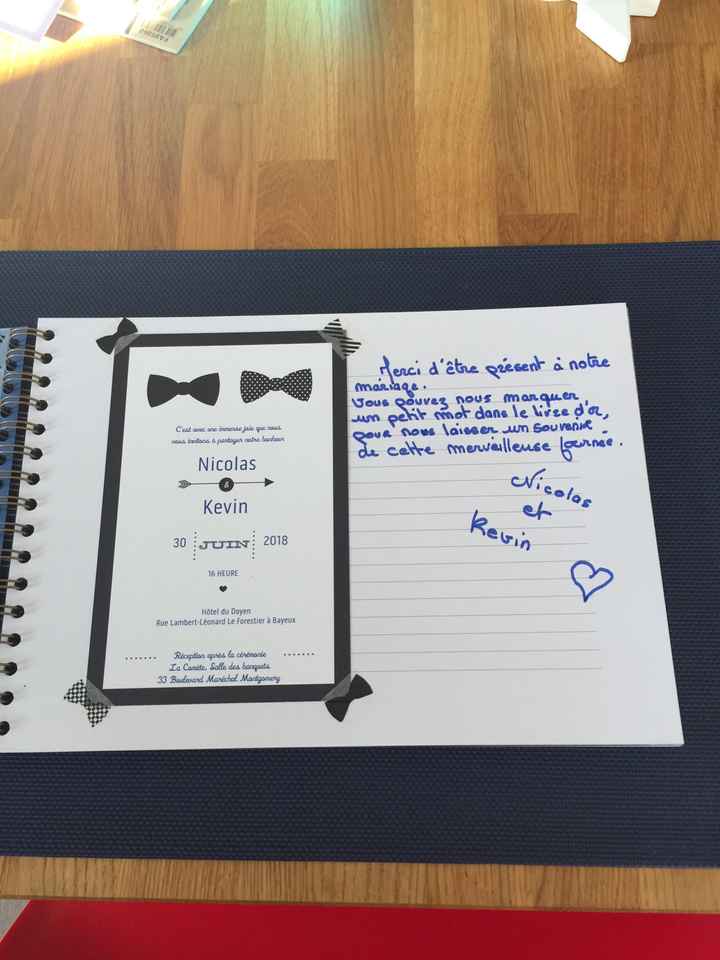 C'est avec une immense joie que nous
vous invitons à partager notre bonheur
Nicolas
&
Kevin
30 JUIN 2018
16 HEURE
Hôtel du Doyen
Rue Lambert-Léonard Le Forestier à Bayeux
Réception après la cérémonie
La Comète, Salle des banquets
33 Boulevard Maréchal Montgomery
Merci d'être présent à notre
mariage.
Vous pouvez nous marquer
un petit mot dans le livre d'or,
pour nous laisser un souvenir
de cette merveilleuse journée.
Nicolas
et
Kevin